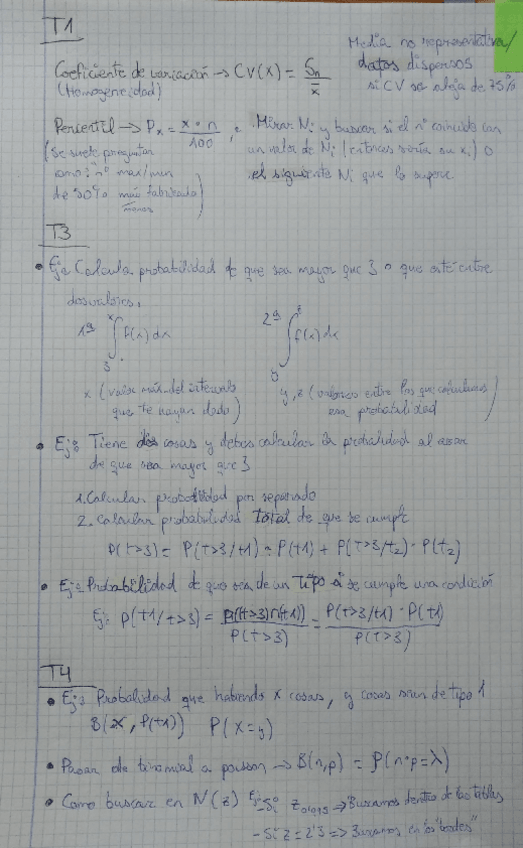 T1
Media no representativa/
datos dispersos
si CV se aleja de 75%
Coeficiente de variación → CV(x) = Sn / x̄
(Homogeneidad)
Percentil → Px = x · n / 100 , Mirar Ni y buscar si el nº coincide con
un valor de Ni (entonces sería su xi) o
el siguiente Ni que lo supere
(Se suele preguntar
como: nº max/min
de 30% más fabricado)
menos
T3
• Ej: Calcula probabilidad de que sea mayor que 3 o que esté entre
dos valores.
1º ∫ f(x) dx
3
2º ∫ f(x) dx
x (valor máx. del intervalo
que te hayan dado)
y, z (valores entre los que calculamos
esa probabilidad)
• Ej: Tiene dos cosas y debes calcular la probabilidad al azar
de que sea mayor que 3
1. Calcular probabilidad por separado
2. Calcular probabilidad total de que se cumpla
P(t>3) = P(t>3/t1) · P(t1) + P(t>3/t2) · P(t2)
• Ej: Probabilidad de que sea de un tipo si se cumple una condición
Ej: P(t1/t>3) = P((t>3)∩(t1)) / P(t>3) = P(t>3/t1) · P(t1) / P(t>3)
T4
• Ej: Probabilidad que habiendo x cosas, y cosas sean de tipo 1
B(x, P(t1)) P(x=y)
• Pasar de binomial a poisson → B(n,p) = P(n·p=λ)
• Como buscar en N(z) Ej: - Si z0,0195 → Buscamos dentro de las tablas
- Si z = 2'3 => Buscamos en los "bordes"